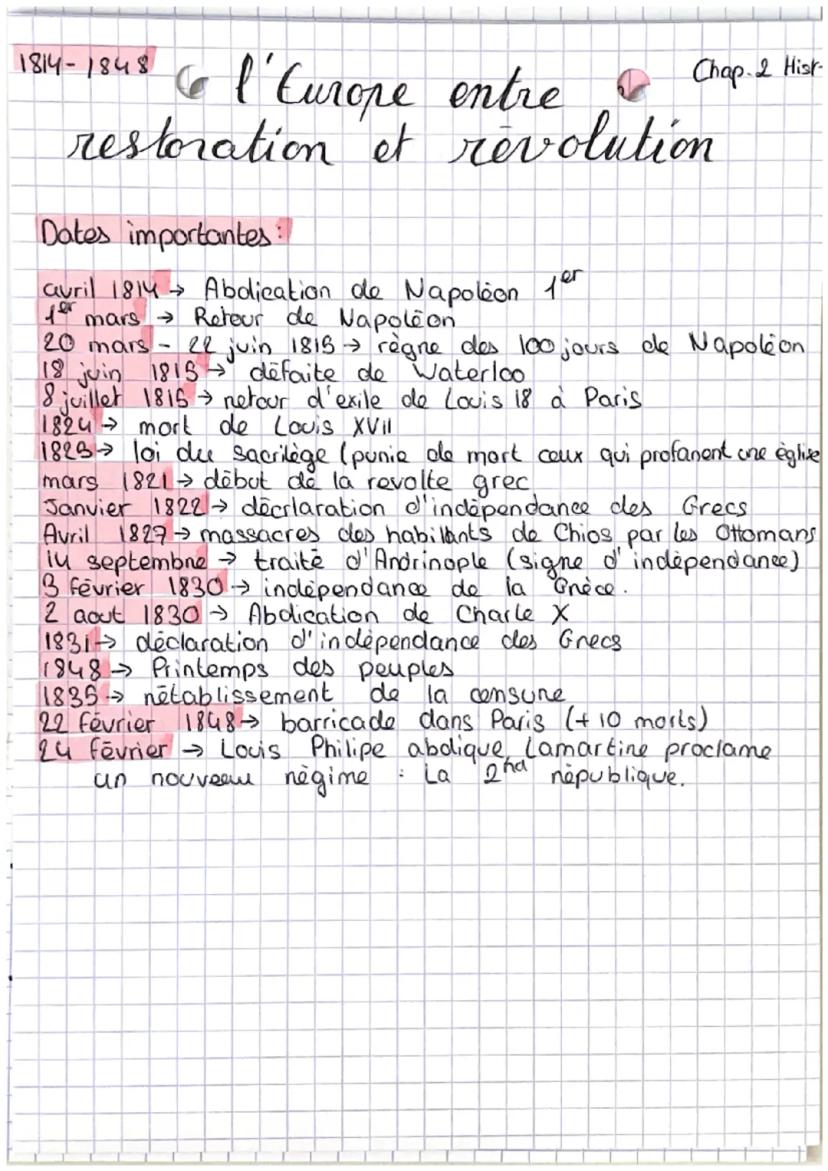 1814-1848
Chap.2 Hist-
l'Europe entre
restoration et révolution
Dates importantes:
avril 1814 → Abdication de Napoléon 1er
1er mars → Retour de Napoléon
20 mars - 22 juin 1815 → règne des 100 jours de Napoléon
18 juin 1815 → défaite de Waterloo
8 juillet 1815 → retour d'exile de Louis 18 à Paris
1824 → mort de Louis XVII
1825 → loi du sacrilège (punie de mort ceux qui profanent une église
mars 1821 → début de la revolte grec
Janvier 1822 → décrlaration d'indépendance des Grecs
Avril 1827 → massacres des habillants de Chios par les Ottomans
14 septembre → traité d'Andrinople (signe d'indépendance)
3 février 1830 → indépendance de la Grèce.
2 aout 1830 → Abdication de Charle X
1831 → déclaration d'indépendance des Grecs
1848 → Printemps des peuples
1835 → rétablissement de la censure
22 février 1848 → barricade dans Paris (+ 10 morts)
24 février → Louis Philipe abdique, Lamartine proclame
un nouveau régime : La 2nd république.